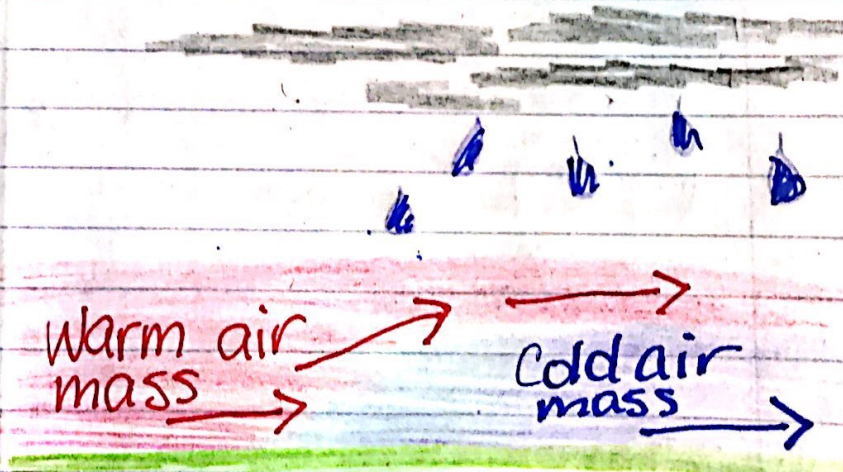 Warm air
mass
Cold air
mass